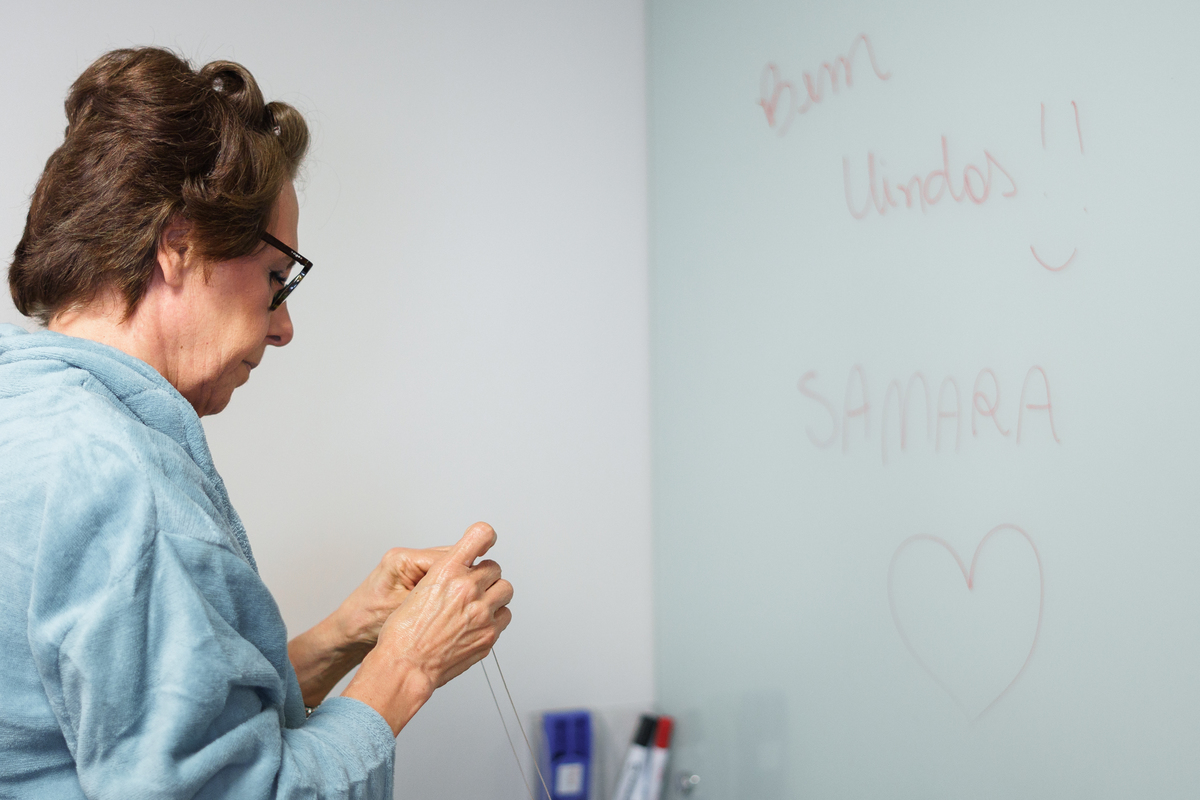 Bem
Vindos !!
SAMARA